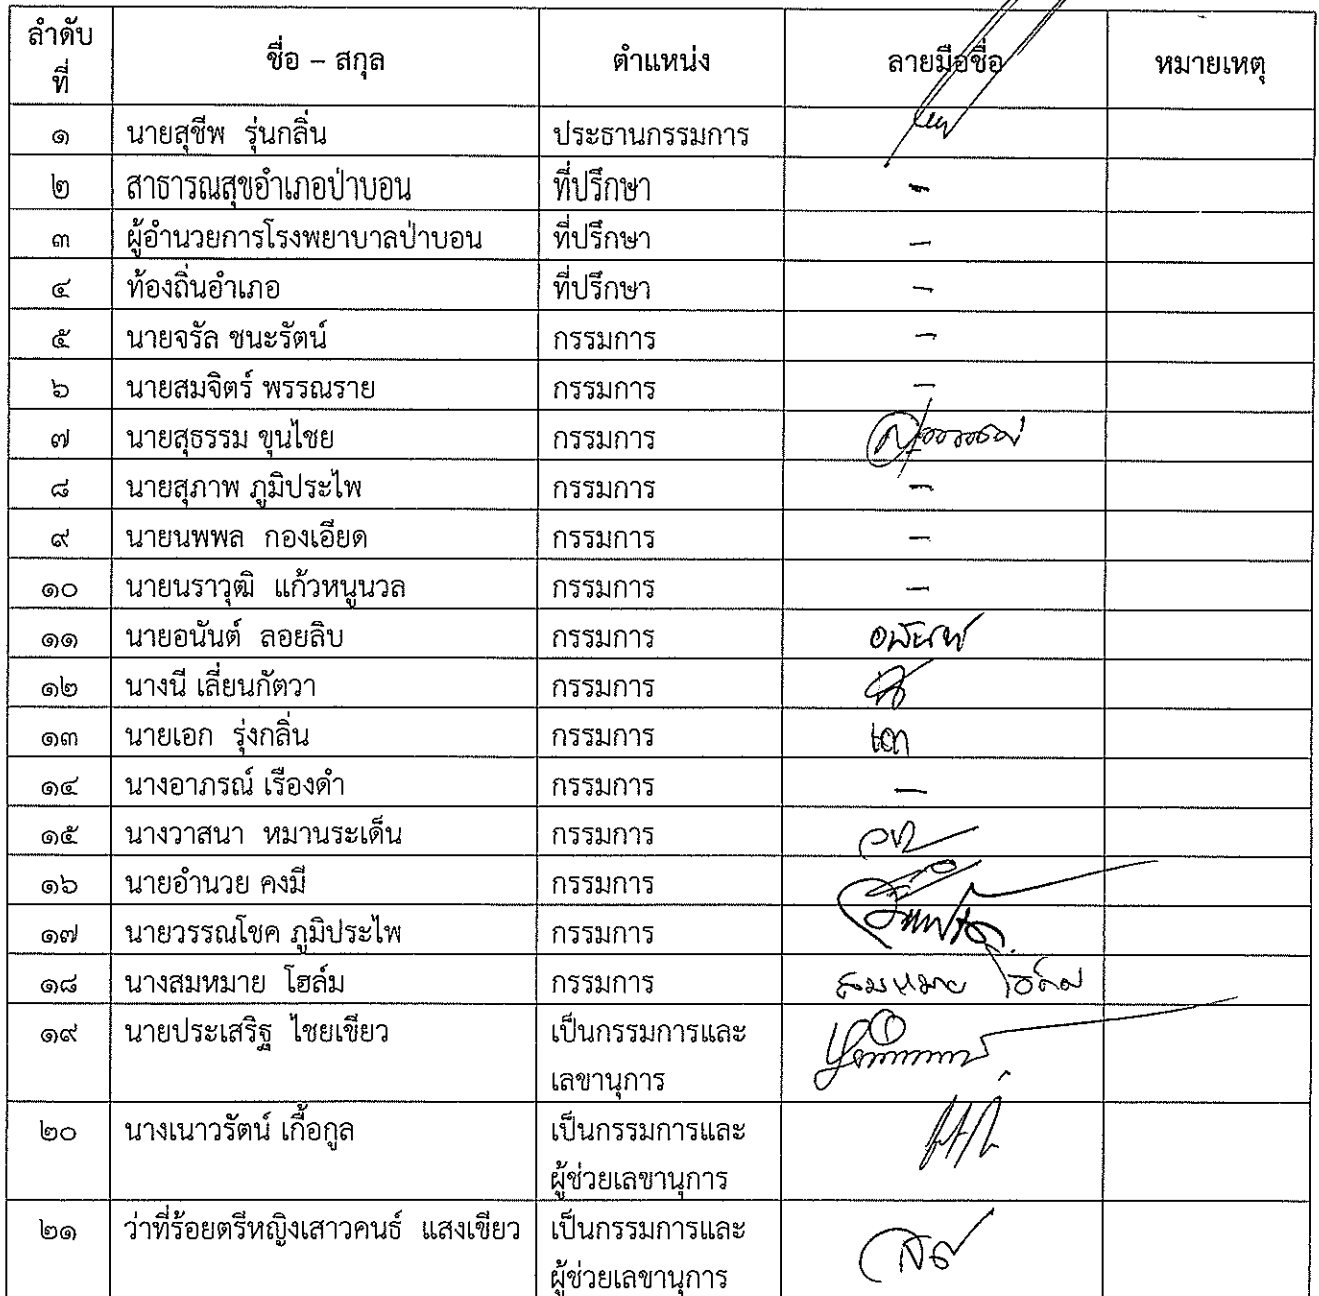 ลำดับที่ ชื่อ – สกุล ตำแหน่ง ลายมือชื่อ หมายเหตุ
๑ นายสุชีพ รุ่นกลิ่น ประธานกรรมการ
๒ สาธารณสุขอำเภอป่าบอน ที่ปรึกษา -
๓ ผู้อำนวยการโรงพยาบาลป่าบอน ที่ปรึกษา -
๔ ท้องถิ่นอำเภอ ที่ปรึกษา -
๕ นายจรัล ชนะรัตน์ กรรมการ -
๖ นายสมจิตร์ พรรณราย กรรมการ -
๗ นายสุธรรม ขุนไชย กรรมการ
๘ นายสุภาพ ภูมิประไพ กรรมการ -
๙ นายนพพล กองเอียด กรรมการ -
๑๐ นายนราวุฒิ แก้วหนูนวล กรรมการ -
๑๑ นายอนันต์ ลอยลิบ กรรมการ อนันต์
๑๒ นางนี เลี่ยนกัตวา กรรมการ
๑๓ นายเอก รุ่งกลิ่น กรรมการ เอก
๑๔ นางอาภรณ์ เรืองดำ กรรมการ -
๑๕ นางวาสนา หมานระเด็น กรรมการ
๑๖ นายอำนวย คงมี กรรมการ
๑๗ นายวรรณโชค ภูมิประไพ กรรมการ
๑๘ นางสมหมาย โฮล์ม กรรมการ สมหมาย โฮล์ม
๑๙ นายประเสริฐ ไชยเขียว เป็นกรรมการและ
เลขานุการ
๒๐ นางเนาวรัตน์ เกื้อกูล เป็นกรรมการและ
ผู้ช่วยเลขานุการ
๒๑ ว่าที่ร้อยตรีหญิงเสาวคนธ์ แสงเขียว เป็นกรรมการและ
ผู้ช่วยเลขานุการ